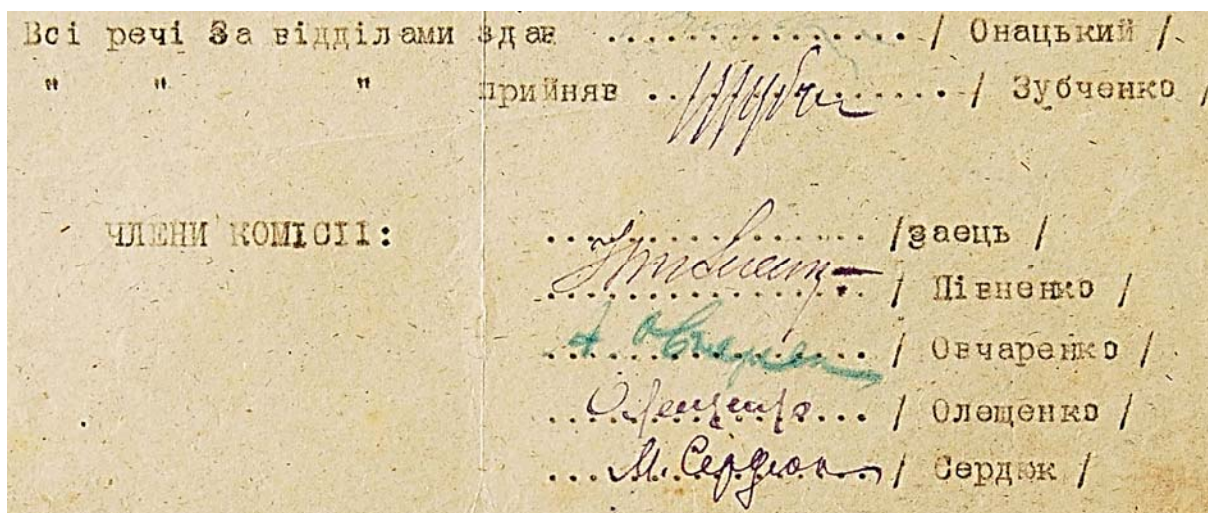 Всі речі За відділами здав ............... / Онацький /
" " " прийняв ............... / Зубченко /
ЧЛЕНИ КОМІСІІ: ............... /заець /
............... / Півненко /
А. Овчарен ............... / Овчаренко /
Олещенко ............... / Олещенко /
М. Сердюк ............... / Сердюк /